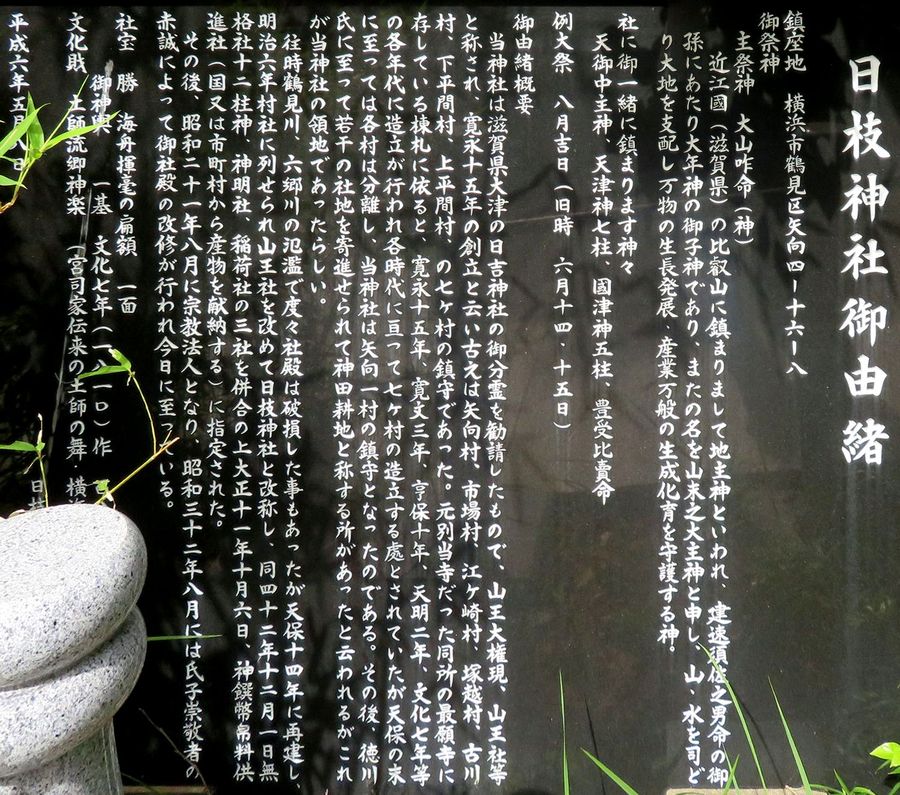 日枝神社御由緒
鎮座地 横浜市鶴見区矢向四ー十六ー八
御祭神
主祭神 大山咋命(神)
近江國(滋賀県)の比叡山に鎮まりまして地主神といわれ、建速須佐之男命の御
孫にあたり大年神の御子神であり、またの名を山末之大主神と申し、山・水を司ど
り大地を支配し万物の生長発展、産業万般の生成化育を守護する神。
社に御一緒に鎮まります神々
天御中主神、天津神七柱、國津神五柱、豊受比賣命
例大祭 八月吉日(旧時 六月十四、十五日)
御由緒概要
当神社は滋賀県大津の日吉神社の御分霊を勧請したもので、山王大権現、山王社等
と称され、寛永十五年の創立と云い古えは矢向村、市場村、江ケ崎村、塚越村、古川
村、下平間村、上平間村、の七ケ村の鎮守であった。元別当寺だった同所の最願寺に
存している棟札に依ると、寛永十五年、寛文三年、亨保十年、天明二年、文化七年等
の各年代に造立が行われ各時代に亘って七ヶ村の造立する處とされていたが天保の末
に至っては各村は分離し、当神社は矢向一村の鎮守となったのである。その後、徳川
氏に至って若干の社地を寄進せられて神田耕地と称する所があったと云われるがこれ
が当神社の領地であったらしい。
往時鶴見川、六郷川の氾濫で度々社殿は破損した事もあったが天保十四年に再建し、
明治六年村社に列せられ山王社を改めて日枝神社と改称し、同四十二年十二月一日無
格社十二柱神、神明社、稲荷社の三社を併合の上大正十一年十月六日、神饌幣帛料供
進社(国又は市町村から産物を献納する)に指定された。
その後、昭和二十一年八月に宗教法人となり、昭和三十二年八月には氏子崇敬者の
赤誠によって御社殿の改修が行われ今日に至っている。
社宝 勝 海舟揮毫の扁額 一面
御神輿 一基 文化七年(一八一〇)作
文化財 土師流郷神楽 (宮司家伝来の土師の舞・横
平成六年五月八日 日枝